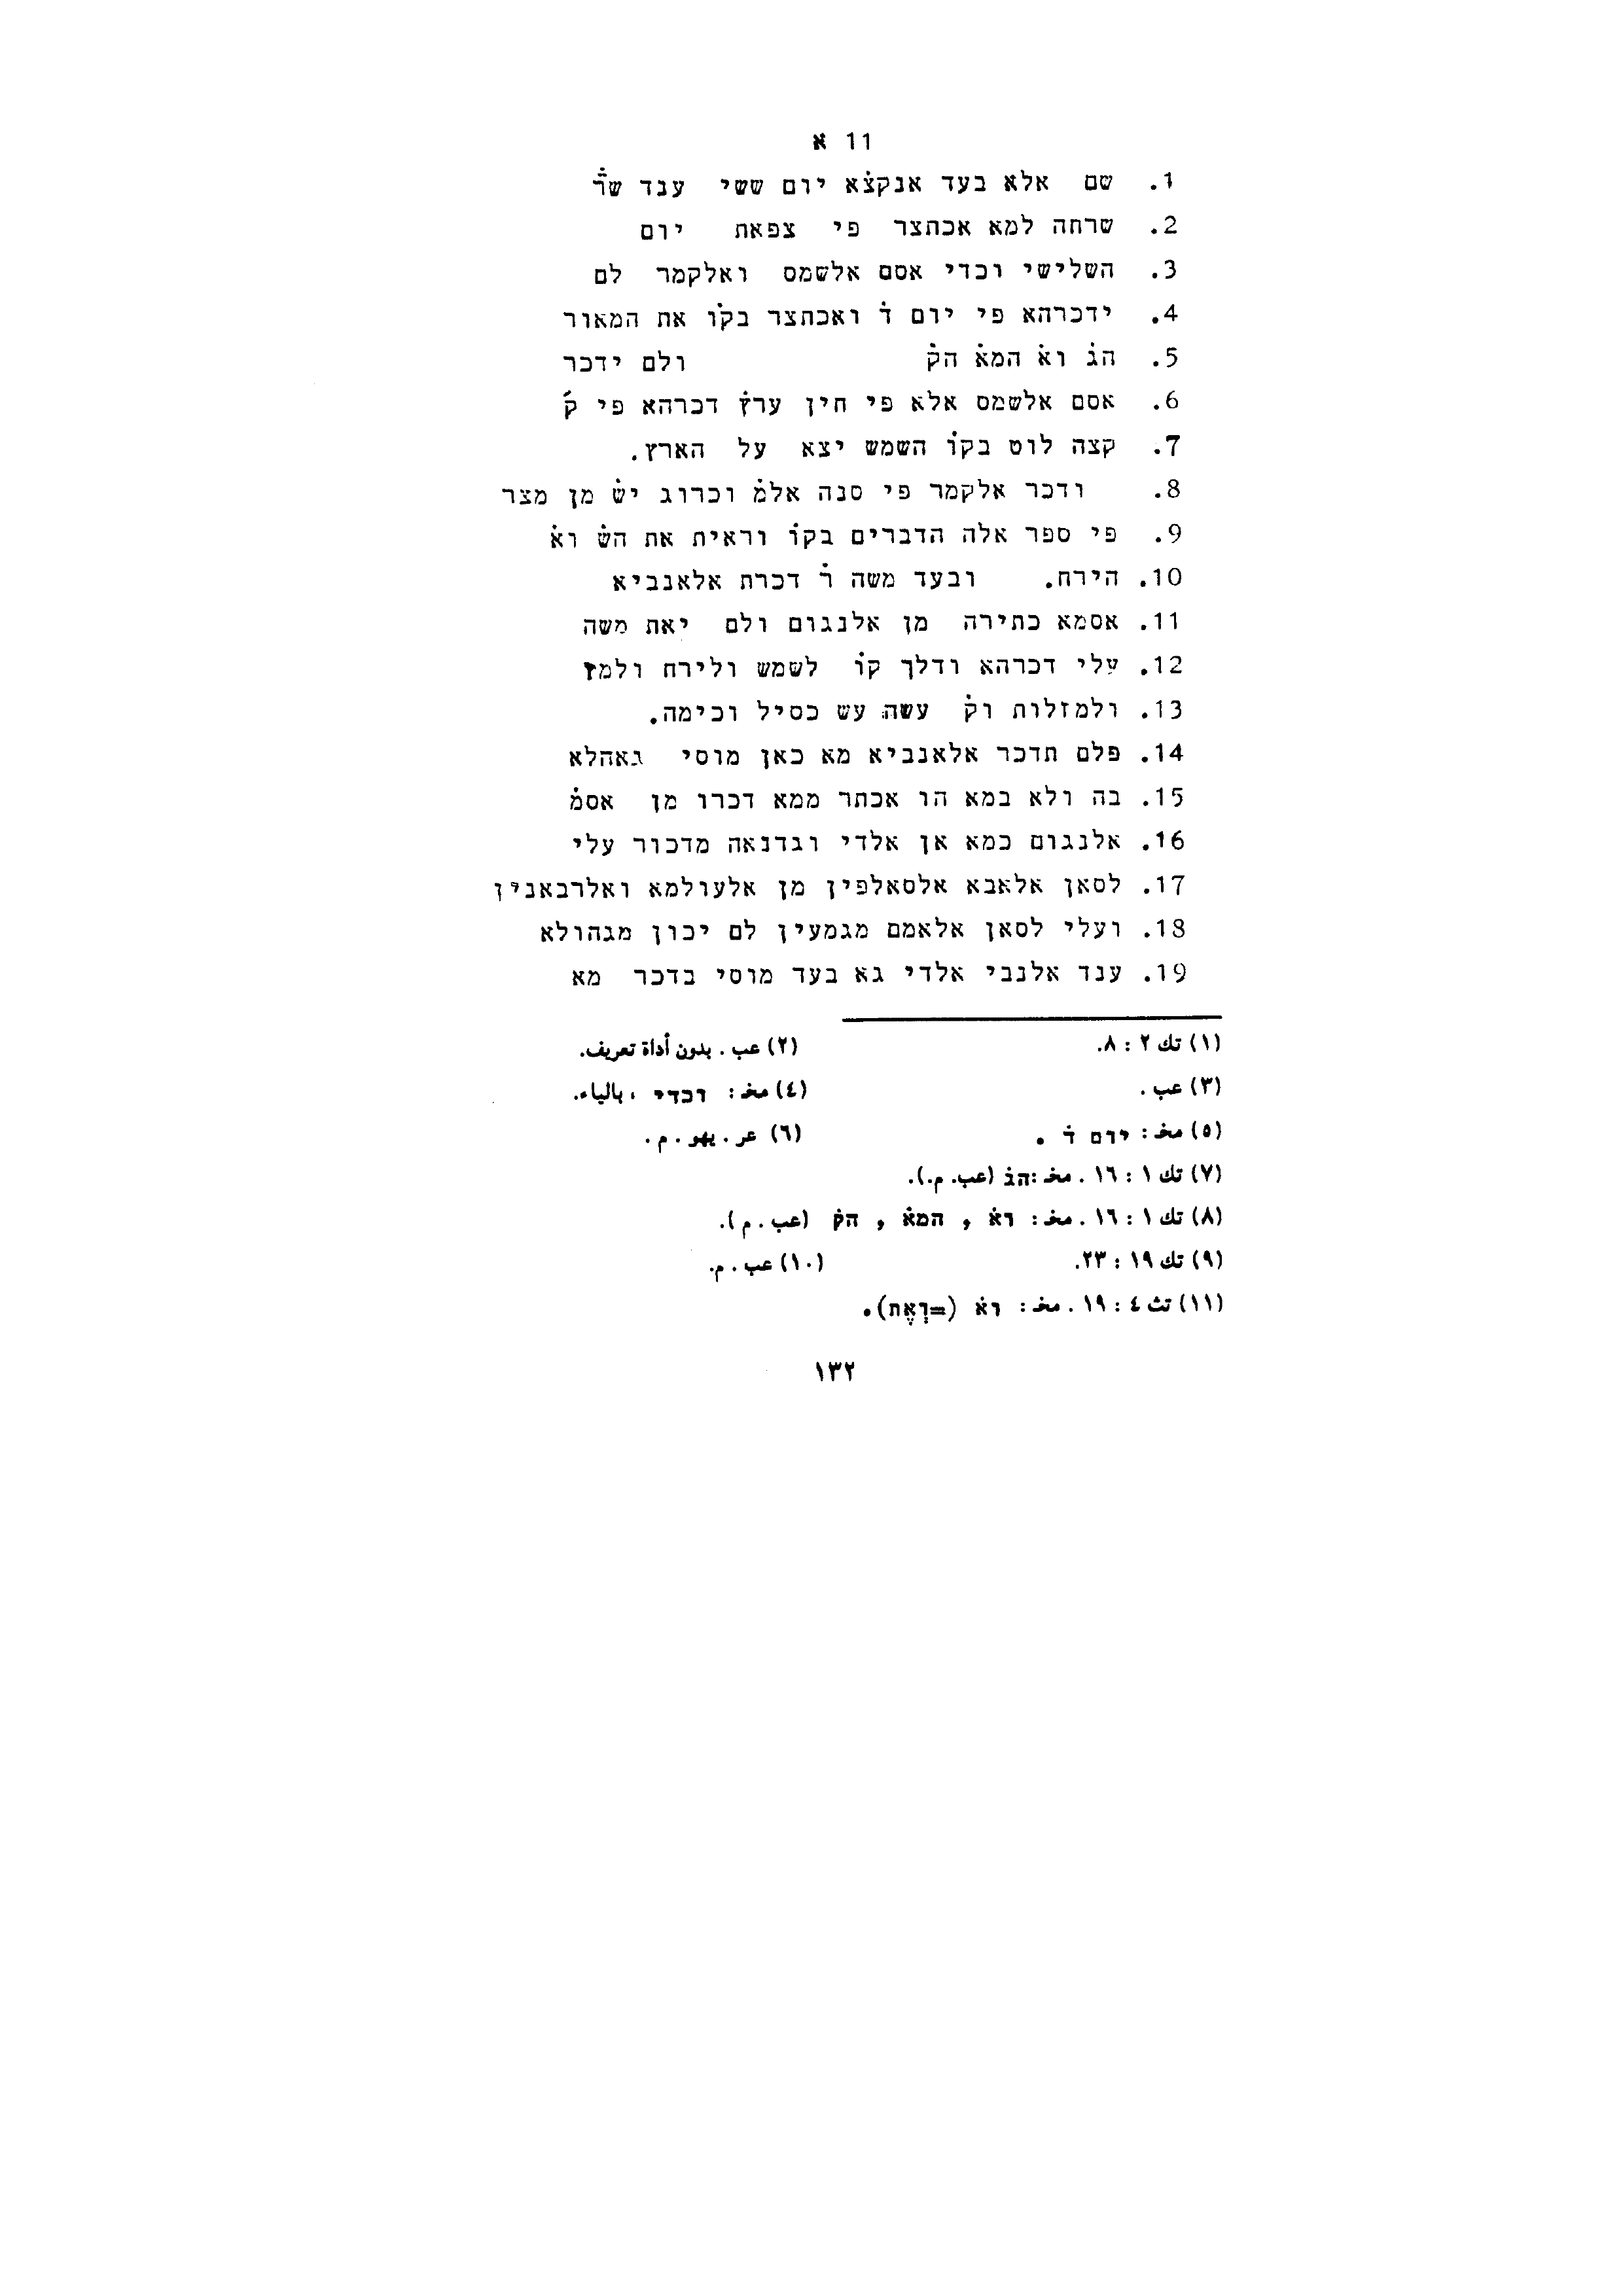 11 א
1. שם אלא בעד אנקצ̇א יום ששי ענד שר̇̄
2. שרחה למא אכתצר פי צפאת יום
3. השלישי וכדי אסם אלשמס ואלקמר לם
4. ידכרהא פי יום ד̇ ואכתצר בקו̇ את המאור
5. הג̇ וא̇ המא̇ הק̇ ולם ידכר
6. אסם אלשמס אלא פי חין ערץ̇ דכרהא פי ק̇
7. קצה לוט בקו̇ השמש יצא על הארץ.
8. ודכר אלקמר פי סנה אלמ̇ וכרוג יש̇ מן מצר
9. פי ספר אלה הדברים בקו̇ וראית את הש̇ וא̇
10. הירח. ובעד משה ר̇ דכרת אלאנביא
11. אסמא כתירה מן אלנגום ולם יאת משה
12. עלי דכרהא ודלך קו̇ לשמש ולירח ולמז
13. ולמזלות וק̇ עשה עש כסיל וכימה.
14. פלם תדכר אלאנביא מא כאן מוסי גאהלא
15. בה ולא במא הו אכתר ממא דכרו מן אסמ̇
16. אלנגום כמא אן אלדי וגדנאה מדכור עלי
17. לסאן אלאבא אלסאלפין מן אלעולמא ואלרבאנין
18. ועלי לסאן אלאמם מגמעין לם יכון מגהולא
19. ענד אלנבי אלדי גא בעד מוסי בדכר מא
(١) تك ٢ : ٨. (٢) عب . بدون أداة تعريف.
(٣) عب . (٤) مخ : וכדי ، بالياء.
(٥) مخ : יום ד̇ . (٦) عر . يهو . م .
(٧) تك ١ : ١٦ . مخ :הג̇ (عب. م.).
(٨) تك ١ : ١٦ . مخ : וא̇ , המא̇ , הק̇ (عب . م).
(٩) تك ١٩ : ٢٣. (١٠) عب . م.
(١١) تث ٤ : ١٩ . مخ : וא̇ (=וְאֶת).
١٣٢